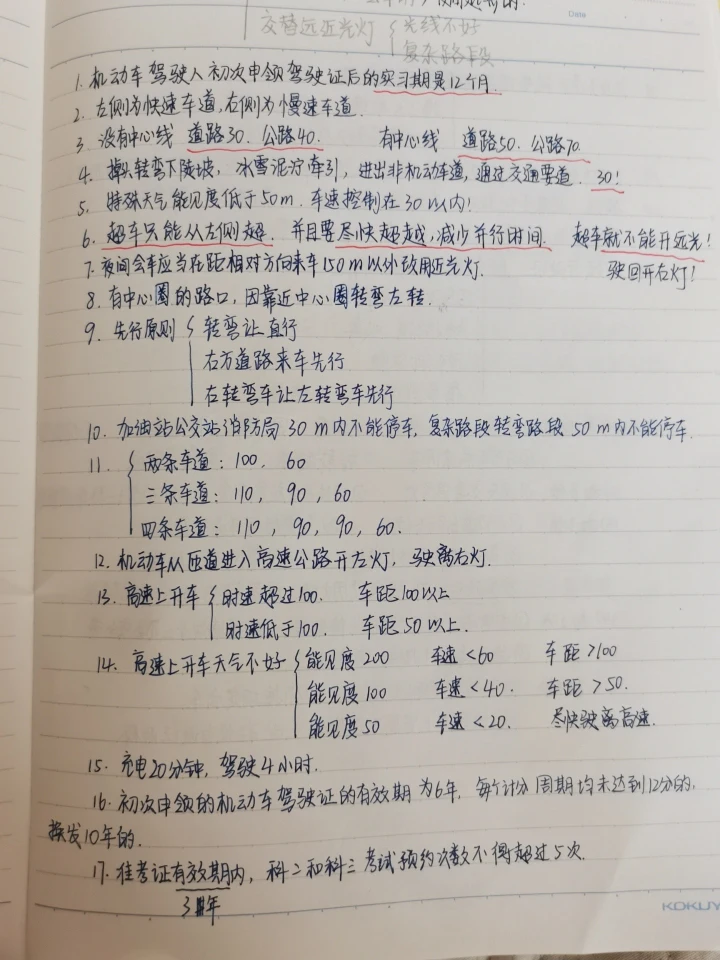 Date
交替远近光灯 { 光线不好
复杂路段
1. 机动车驾驶人初次申领驾驶证后的实习期是12个月.
2. 左侧为快速车道,右侧为慢速车道.
3. 没有中心线 道路30. 公路40. 有中心线 道路50. 公路70.
4. 掉头转弯下陡坡, 冰雪泥泞牵引, 进出非机动车道, 通过交通要道. 30!
5. 特殊天气能见度低于50m. 车速控制在30以内!
6. 超车只能从左侧超. 并且要尽快超越,减少并行时间. 超车就不能开远光!
7. 夜间会车应当在距相对方向来车150m以外改用近光灯. 驶回开右灯!
8. 有中心圈的路口, 因靠近中心圈转弯左转.
9. 先行原则 { 转弯让直行
右方道路来车先行
右转弯车让左转弯车先行
10. 加油站公交站消防局30m内不能停车, 复杂路段转弯路段50m内不能停车.
11. { 两条车道: 100, 60
三条车道: 110, 90, 60
四条车道: 110, 90, 90, 60.
12. 机动车从匝道进入高速公路开左灯, 驶离右灯.
13. 高速上开车 { 时速超过100. 车距100以上
时速低于100. 车距50以上.
14. 高速上开车天气不好 { 能见度200 车速<60 车距>100
能见度100 车速<40. 车距>50.
能见度50 车速<20. 尽快驶离高速.
15. 充电20分钟, 驾驶4小时.
16. 初次申领的机动车驾驶证的有效期为6年, 每个计分周期均未达到12分的,
换发10年的.
17. 准考证有效期内, 科二和科三考试预约次数不得超过5次.
3年
KOKUY